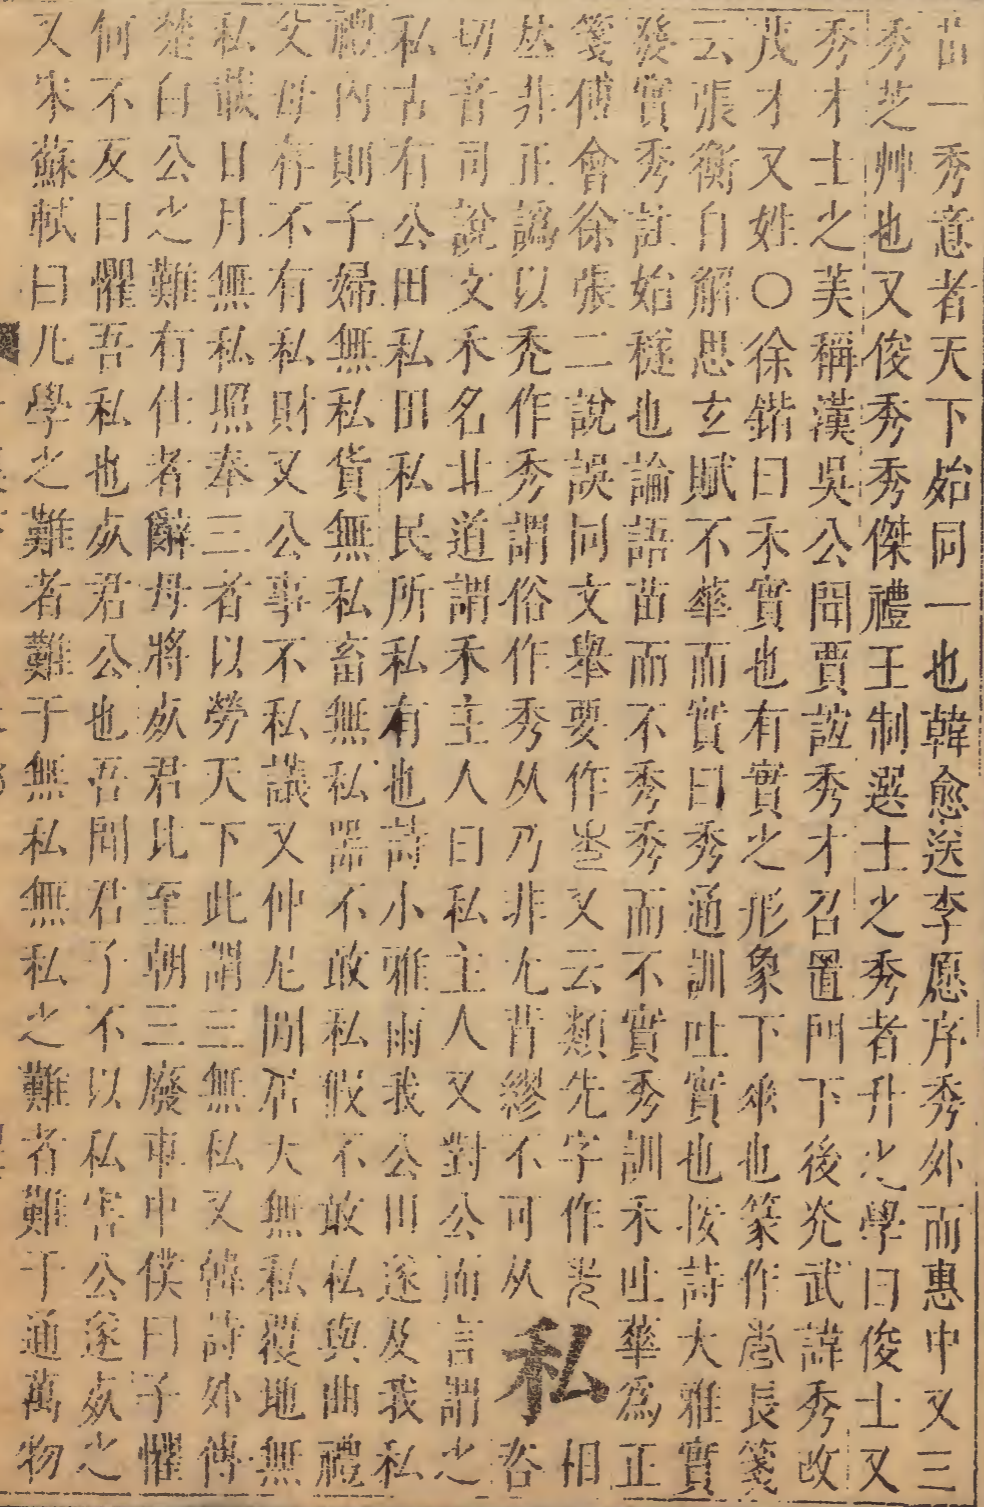 苗一秀意者天下始同一也韓愈送李愿序秀外而惠中又三
秀芝艸也又俊秀秀傑禮王制選士之秀者升之學曰俊士又
秀才士之美稱漢吳公聞賈誼秀才召置門下後光武諱秀改
茂才又姓〇徐鍇曰禾實也有實之形象下垂也篆作秀長箋
云張衡自解思玄賦不華而實曰秀通訓吐實也按詩大雅實
發實秀註始穟也論語苗而不秀秀而不實秀訓禾吐華為正
箋傅會徐張二說誤同文舉要作又云類先字作
𠀤非正譌以禿作秀謂俗作秀从乃非尢昔繆不可从
私
相咨
切音司說文禾名北道謂禾主人曰私主人又對公而言謂之
私古有公田私田私民所私有也詩小雅雨我公田遂及我私
禮內則子婦無私貨無私畜無私器不敢私假不敢私與曲禮
父母存不有私財又公事不私議又仲尼閒居大無私覆地無
私載日月無私照奉三者以勞天下此謂三無私又韓詩外傳
楚白公之難有仕者辭母將𣦸君比至朝三廢車中僕曰子懼
何不反曰懼吾私也𣦸君公也吾聞君子不以私害公遂𣦸之
又宋蘇軾曰凡學之難者難于無私無私之難者難于通萬物